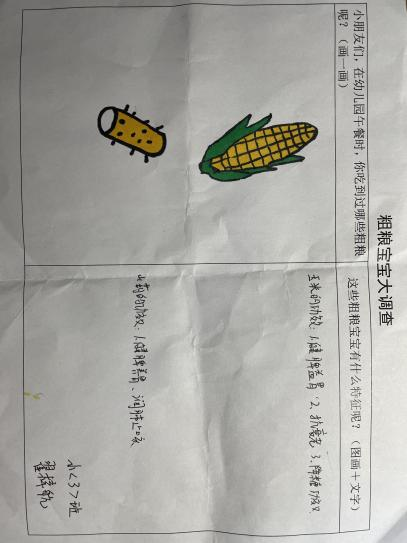 粗粮宝宝大调查
小朋友们，在幼儿园午餐时，你吃到过哪些粗粮
呢？（画一画）
这些粗粮宝宝有什么特征呢？（图画＋文字）
玉米的功效：1、健脾益胃 2、抗衰老 3、降糖功效
山药的功效：1、健脾养胃、润肺止咳
小<3>班